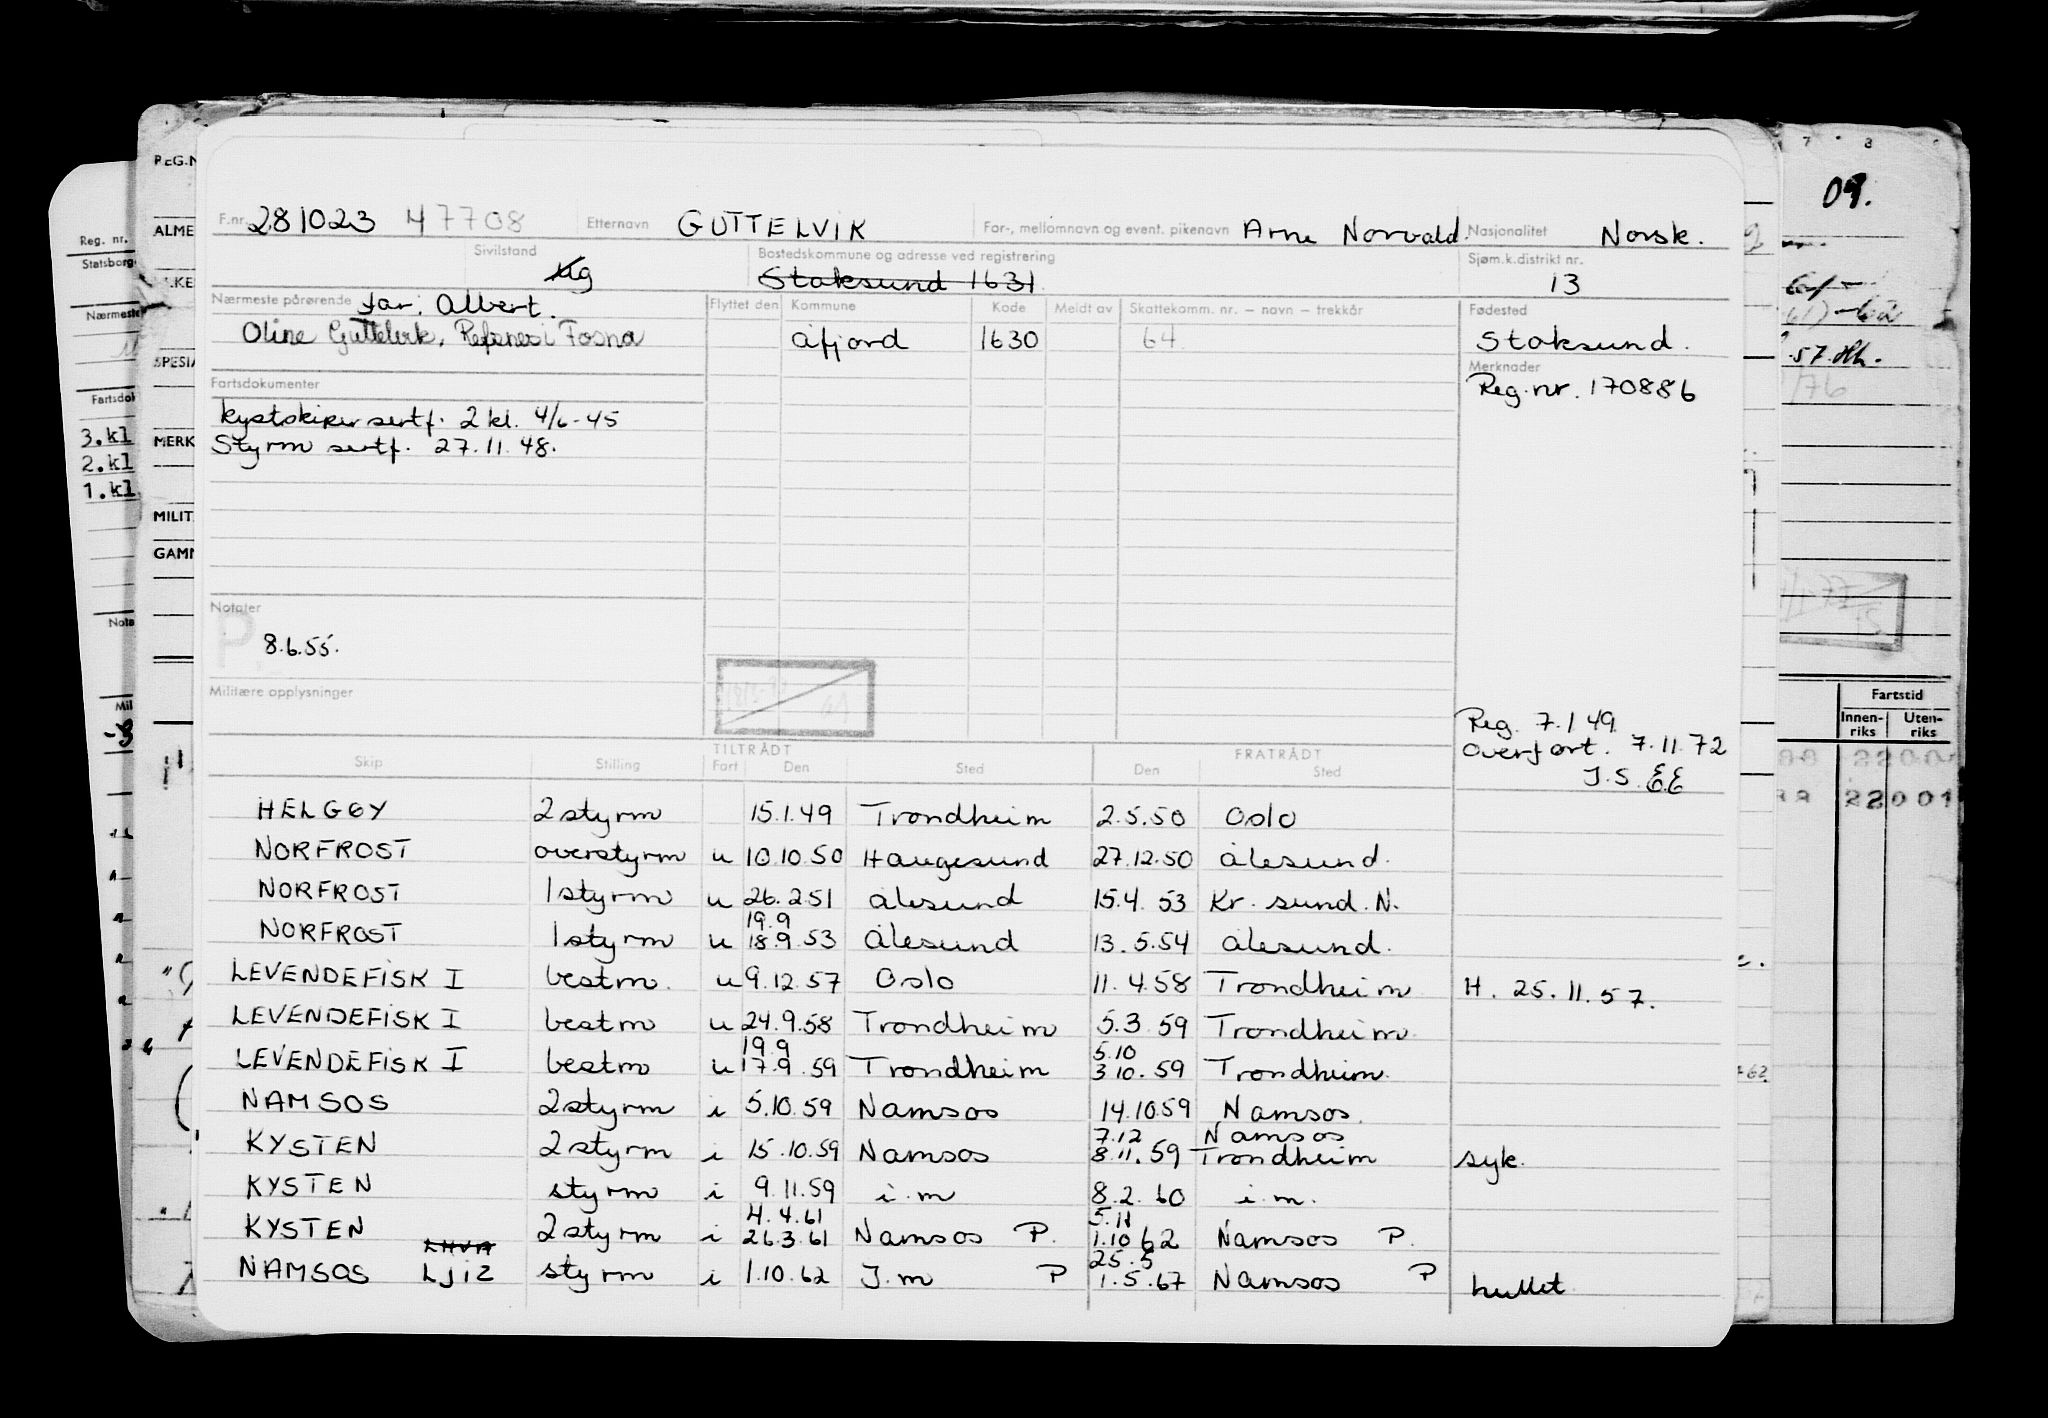 F.nr. 281023 47708 Etternavn GUTTELVIK For-, mellomnavn og event. pikenavn Arne Norvald. Nasjonalitet Norsk.
Sivilstand ug Bostedskommune og adresse ved registrering Stoksund 1631 Sjøm.k.distrikt nr. 13
Nærmeste pårørende far: Albert. Flyttet den Kommune Kode Meldt av Skattekomm. nr. – navn – trekkår Fødested
Oline Guttelvik, Refsnes i Fosna Åfjord 1630 64 Stoksund.
Fartsdokumenter Merknader
Reg.nr. 170886
kystskipersertf. 2 kl. 4/6-45
Styrm sertf. 27.11.48.
Notater
P. 8.6.55.
Militære opplysninger
Reg. 7.1 49
Overført. 7.11.72
J.S. EE
TILTRÅDT FRATRÅDT
Skip Stilling Fart Den Sted Den Sted
HELGØY 2styrm 15.1.49 Trondheim 2.5.50 Oslo
NORFROST overstyrm u 10.10.50 Haugesund 27.12.50 Ålesund.
NORFROST 1styrm u 26.2.51 Ålesund 15.4.53 Kr.sund.N.
19.9
NORFROST 1styrm u 18.9.53 Ålesund 13.5.54 Ålesund.
LEVENDEFISK I bestm. u 9.12.57 Oslo 11.4.58 Trondheim H. 25.11.57.
LEVENDEFISK I bestm u 24.9.58 Trondheim 5.3.59 Trondheim.
19.9 5.10
LEVENDEFISK I bestm u 17.9.59 Trondheim 3.10.59 Trondheim.
NAMSOS 2styrm i 5.10.59 Namsos 14.10.59 Namsos.
7.12 Namsos
KYSTEN 2styrm i 15.10.59 Namsos 8.11.59 Trondheim syk.
KYSTEN styrm i 9.11.59 i.m 8.2.60 i.m.
4.4.61 5.11
KYSTEN 2styrm i 26.3.61 Namsos P. 1.10 62 Namsos P.
LHVA 25.5
NAMSOS LJIZ styrm i 1.10.62 J.m P 1.5.67 Namsos P hullet
Reg. nr.
Statsborg
Nærmeste
Fartsdok
3.kl
2.kl
1.kl
Nota
Mil
REG.N
ALME
SPESIA
MERK
MILIT
GAMN
7 8
09.
.57.
/76
Fartstid
Innen-riks Uten-riks
22001